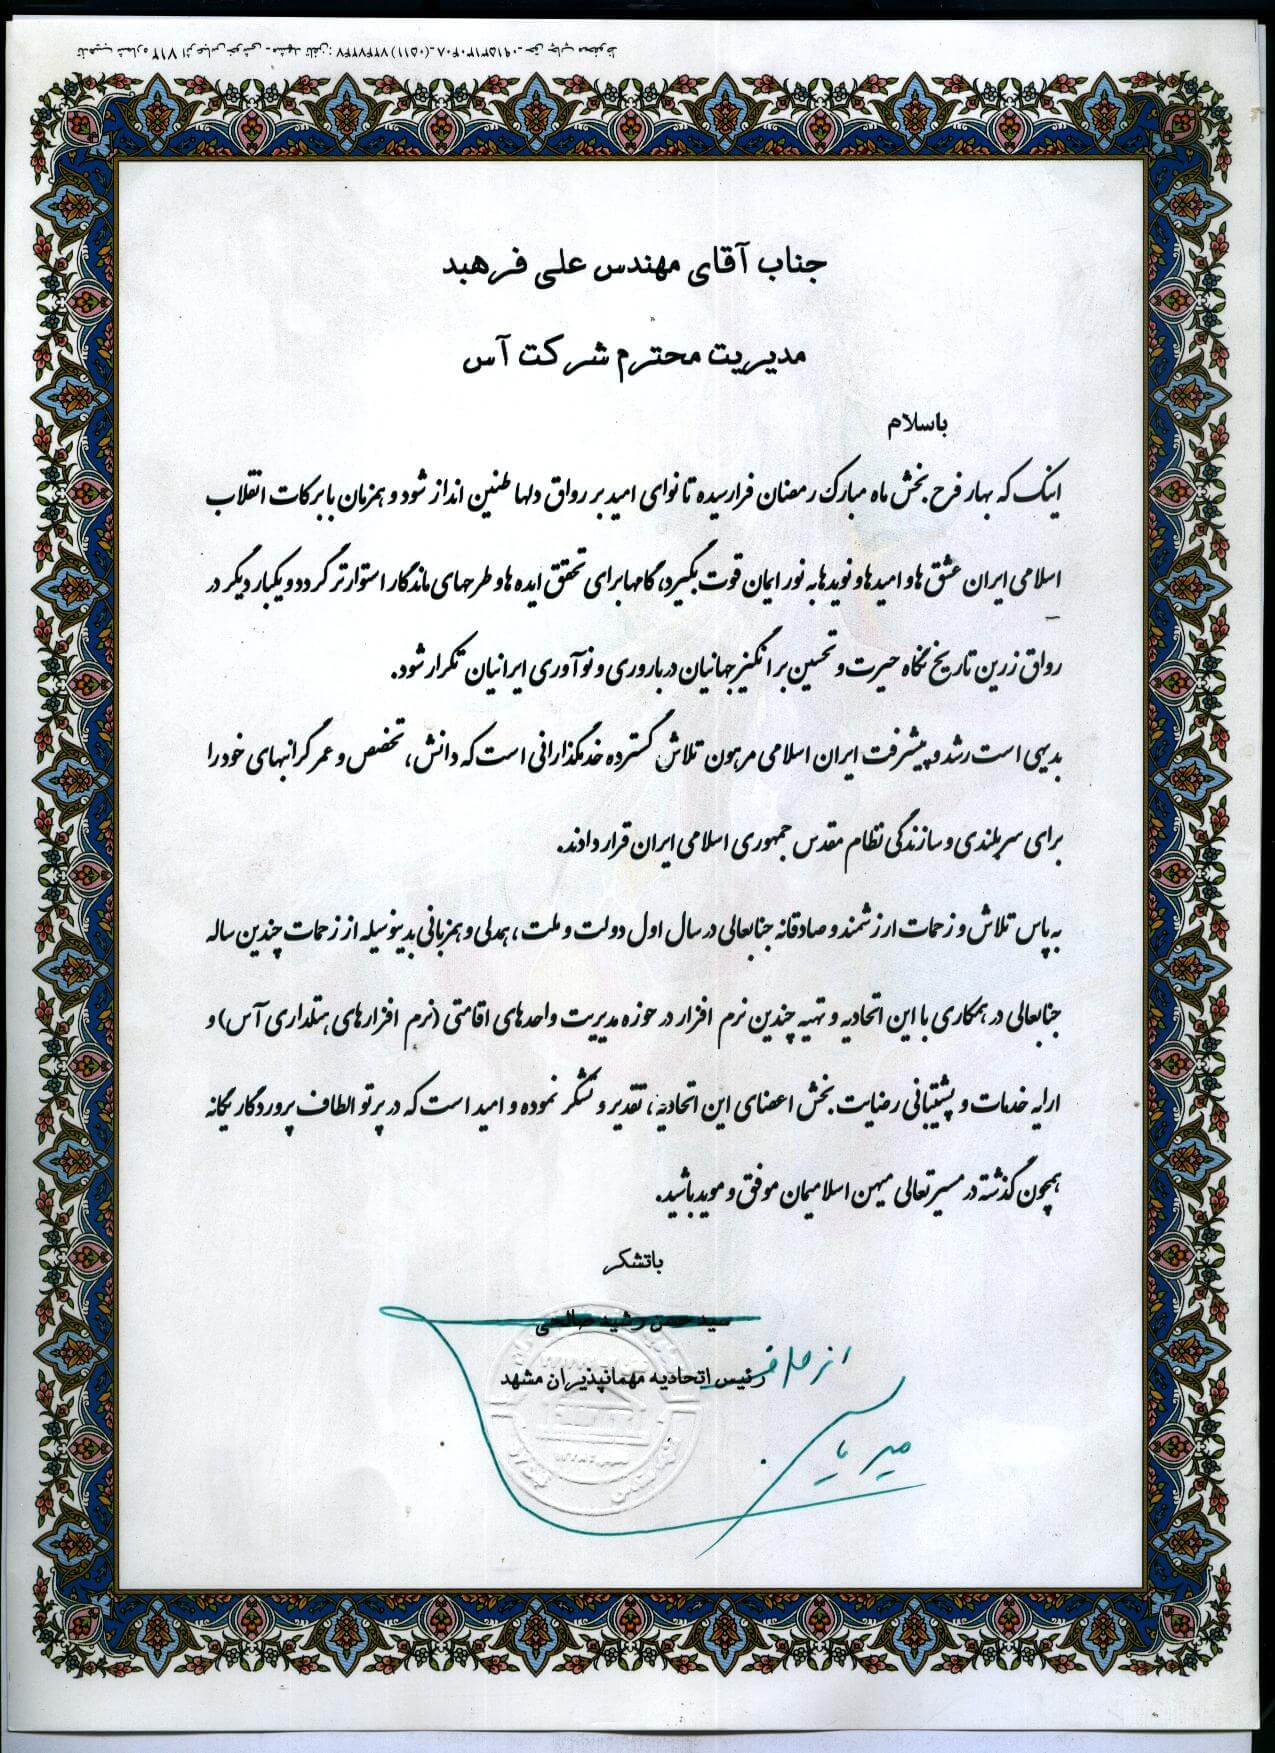 جناب آقای مهندس علی فرهبد
مدیریت محترم شرکت آس
باسلام
اینک که بهار فرح بخش ماه مبارک رمضان فرارسیده تا نوای امید بر رواق دلها طنین انداز شود و همزمان با برکات انقلاب
اسلامی ایران عشق ها و امیدها و نویدها به نور ایمان قوت بگیرد، گامها برای تحقق ایده ها و طرحهای ماندگار استوارتر گردد و یکبار دیگر در
رواق زرین تاریخ نگاه حیرت و تحسین برانگیز جهانیان در باروری و نوآوری ایرانیان تکرار شود.
بدیهی است رشد و پیشرفت ایران اسلامی مرهون تلاش گسترده خدمگذارانی است که دانش، تخصص و عمر گرانبهای خود را
برای سربلندی و سازندگی نظام مقدس جمهوری اسلامی ایران قرار دادند.
به پاس تلاش و زحمات ارزشمند و صادقانه جنابعالی در سال اول دولت و ملت، همدلی و همزبانی بدینوسیله از زحمات چندین ساله
جنابعالی در همکاری با این اتحادیه و تهیه چندین نرم افزار در حوزه مدیریت واحدهای اقامتی (نرم افزارهای هتلداری آس) و
ارایه خدمات و پشتیبانی رضایت بخش اعضای این اتحادیه، تقدیر و تشکر نموده و امید است که در پرتو الطاف پروردگار یگانه
همچون گذشته در مسیر تعالی میهن اسلامیمان موفق و موید باشید.
باتشکر
سید حسن رشید صالحی
از طرف
رئیس اتحادیه مهمانپذیران مشهد